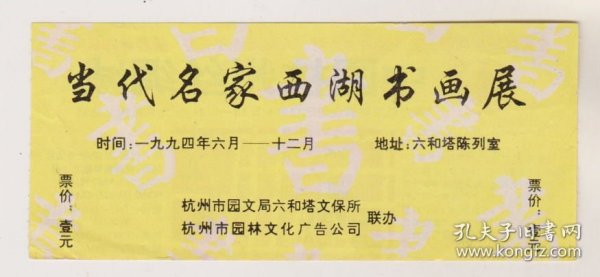 当代名家西湖书画展
时间:一九九四年六月——十二月 地址:六和塔陈列室
票价:壹元
杭州市园文局六和塔文保所
杭州市园林文化广告公司
联办
票价:壹元
孔夫子旧书网